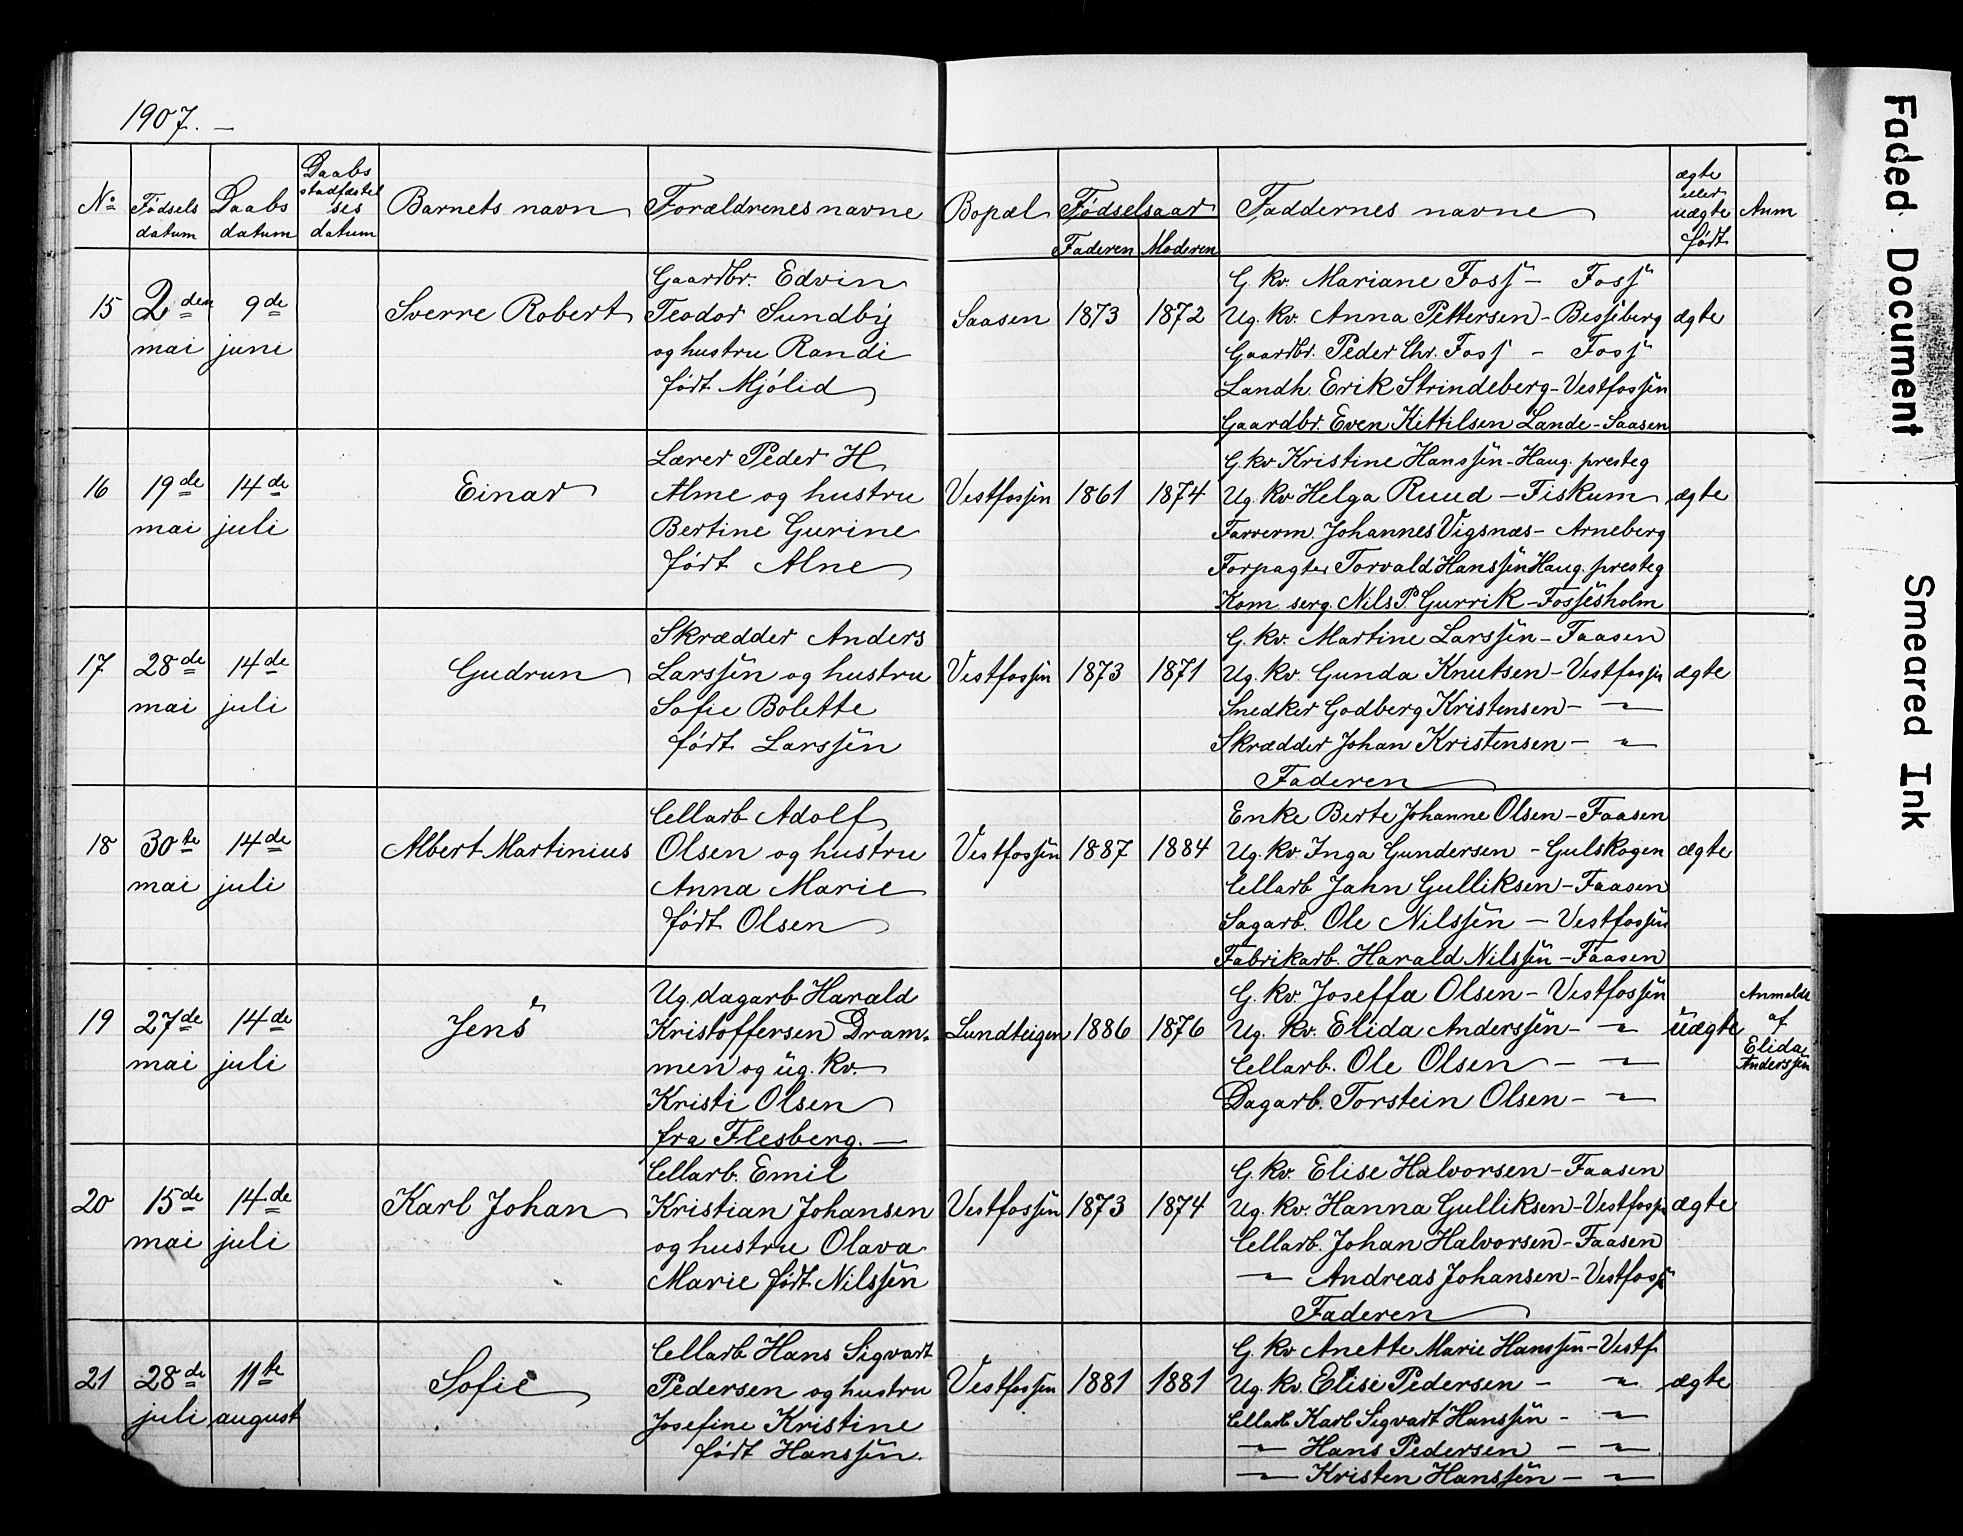 1907. —
No
Fødsels datum
Daabs datum
Daabs stadfæstel ses datum
Barnets navn
Forældrenes navne
Bopæl
Fødselsaar
Faderen
Moderen
Faddernes navne
ægte eller uægte født
Anm
15
2den mai
9de juni
Sverre Robert
Gaardbr. Edvin
Teodor Sundby
og hustru Randi
født Mjølid
Saasen
1873
1872
G. kv. Mariane Foss – Foss
Ug. kv. Anna Pettersen – Besseberg
Gaardbr. Peder Chr. Foss – Foss
Landh. Erik Strindeberg – Vestfossen
Gaardbr. Even Kittilsen Lande – Saasen
ægte
16
19de mai
14de juli
Einar
Lærer Peder H
Alme og hustru
Bertine Gurine
født Alne
Vestfossen
1861
1874
G. kv Kristine Hanssen – Haug. presteg
Ug. kv Helga Ruud – Fiskum
Farverm. Johannes Vigsnæs – Arneberg
Forpagter Torvald Hanssen Haug. presteg
Kom. serg. Nils P. Gurrik – Fossesholm
ægte
17
28de mai
14de juli
Gudrun
Skrædder Anders
Larssen og hustru
Sofie Bolette
født Larssen
Vestfossen
1873
1871
G. kv. Martine Larssen – Faasen
Ug. kv. Gunda Knutsen – Vestfossen
Snedker Godberg Kristensen – –"–
Skrædder Johan Kristensen – –"–
Faderen
ægte
18
30te mai
14de juli
Albert Martinius
Cellarb Adolf
Olsen og hustru
Anna Marie
født Olsen
Vestfossen
1887
1884
Enke Berte Johanne Olsen – Faasen
Ug. kv Inga Gundersen – Gulskogen
Cellarb Jahn Gulliksen – Faasen
Sagarb. Ole Nilssen – Vestfossen
Fabrikarb. Harald Nilssen – Faasen
ægte
19
27de mai
14de juli
Jens
Ug. dagarb Harald
Kristoffersen Dram-
men og ug. kv.
Kristi Olsen
fra Flesberg. —
Lundteigen
1886
1876
G. kv. Joseffa Olsen – Vestfossen
Ug. kv. Elida Anderssen – –"–
Cellarb. Ole Olsen – –"–
Dagarb. Torstein Olsen – –"–
uægte
Anmeldt
af
Elida
Anderssen
20
15de mai
14de juli
Karl Johan
Cellarb. Emil
Kristian Johansen
og hustru Olava
Marie født Nilssen
Vestfossen
1873
1874
G. kv. Elise Halvorsen – Faasen
Ug. kv. Hanna Gulliksen – Vestfossen
Cellarb. Johan Halvorsen – Faasen
–"– Andreas Johansen – Vestfoss
Faderen
ægte
21
28de juli
11te august
Sofie
Cellarb Hans Sigvart
Pedersen og hustru
Josefine Kristine
født Hanssen.
Vestfossen
1881
1881
G. kv Anette Marie Hanssen – Vestf.
Ug. kv. Elise Pedersen – –"–
Cellarb Karl Sigvart Hanssen – –"–
–"– Hans Pedersen – –"–
–"– Kristen Hanssen – –"–
ægte
Faded Document
Smeared Ink